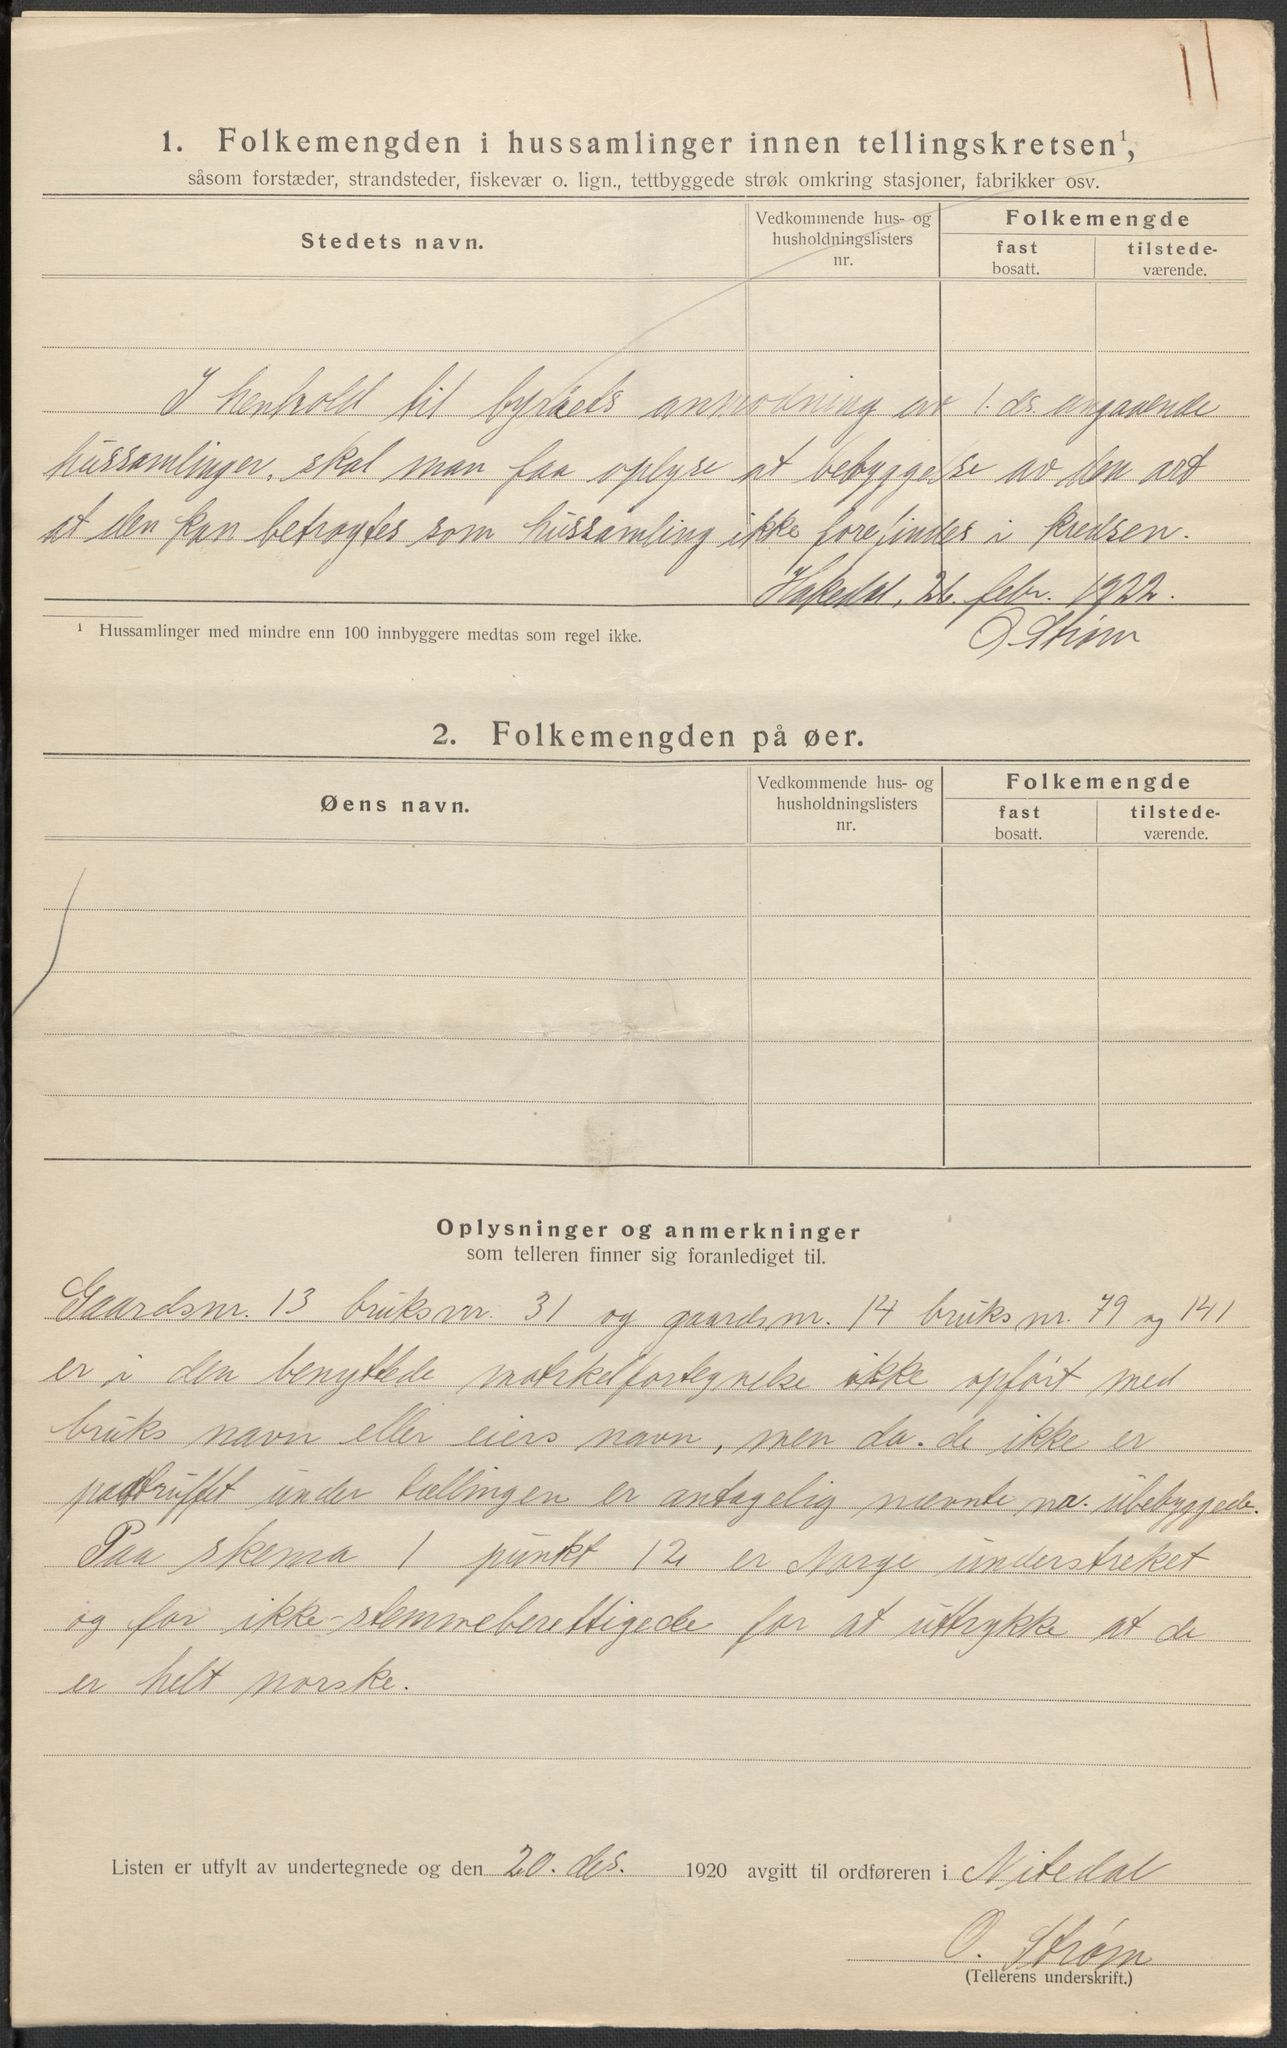 11
1. Folkemengden i hussamlinger innen tellingskretsen¹,
såsom forstæder, strandsteder, fiskevær o. lign., tettbyggede strøk omkring stasjoner, fabrikker osv.
Stedets navn.
Vedkommende hus- og husholdningslisters nr.
Folkemengde
fast bosatt.
tilstede-værende.
I henhold til byråets anmodning av 1. ds. angaaende
hussamlinger, skal man faa oplyse at bebyggelse av den art
at den kan betragtes som hussamling ikke forefindes i kredsen.
Hakedal, 26. febr. 1922.
O. Strøm
¹ Hussamlinger med mindre enn 100 innbyggere medtas som regel ikke.
2. Folkemengden på øer.
Øens navn.
Vedkommende hus- og husholdningslisters nr.
Folkemengde
fast bosatt.
tilstede-værende.
Oplysninger og anmerkninger
som telleren finner sig foranlediget til.
Gaardsnr. 13 bruksnr. 31 og gaardsnr. 14 bruksnr. 79 og 141
er i den benyttede matrikelfortegnelse ikke opført med
bruks navn eller eiers navn, men da de ikke er
paatruffet under tællingen er antagelig nævnte nr. ubebyggede.
Paa skema 1 punkt 12 er Norge understreket
og for ikke-stemmeberettigede for at uttrykke at de
er helt norske.
Listen er utfylt av undertegnede og den 20. des. 1920 avgitt til ordføreren i Nitedal
O. Strøm
(Tellerens underskrift.)